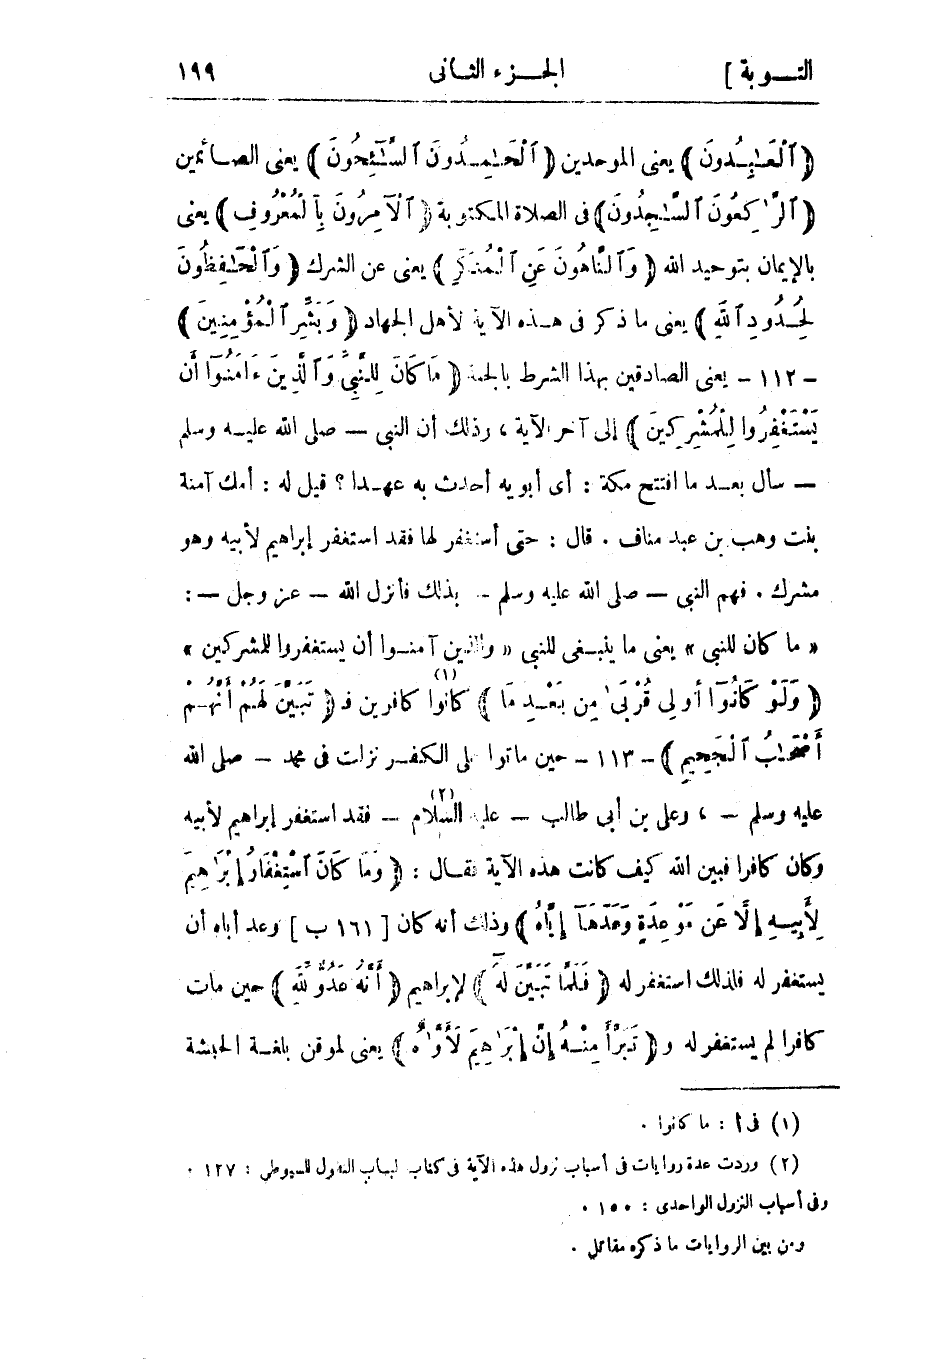 التـوبة ]
الجـزء الثانى
١٩٩
﴿ ٱلْعَـٰبِدُونَ ﴾ يعنى الموحدين ﴿ ٱلْحَـٰمِدُونَ ٱلسَّـٰٓئِحُونَ ﴾ يعنى الصائمين
﴿ ٱلرَّٰكِعُونَ ٱلسَّـٰجِدُونَ ﴾ فى الصلاة المكتوبة ﴿ ٱلْأَمِرُونَ بِٱلْمَعْرُوفِ ﴾ يعنى
بالإيمان بتوحيد الله ﴿ وَٱلنَّاهُونَ عَنِ ٱلْمُنكَرِ ﴾ يعنى عن الشرك ﴿ وَٱلْحَـٰفِظُونَ
لِحُدُودِ ٱللَّهِ ﴾ يعنى ما ذكر فى هـذه الآية لأهل الجهاد ﴿ وَبَشِّرِ ٱلْمُؤْمِنِينَ ﴾
- ١١٢ - يعنى الصادقين بهذا الشرط بالجنة ﴿ مَا كَانَ لِلنَّبِىِّ وَٱلَّذِينَ ءَامَنُوٓا أَن
يَسْتَغْفِرُوا لِلْمُشْرِكِينَ ﴾ إلى آخر الآية ، وذلك أن النبى - صلى الله عليه وسلم
- سأل بعـد ما افتتح مكة : أى أبويه أحدث به عهـدا ؟ قيل له : أمك آمنة
بنت وهب بن عبد مناف . قال : حتى أستغفر لها فقد استغفر إبراهيم لأبيه وهو
مشرك . فهم النبى - صلى الله عليه وسلم - بذلك فأنزل الله - عز وجل - :
« ما كان للنبى » يعنى ما ينبغى للنبى « والذين آمنـوا أن يستغفروا للمشركين »
﴿ وَلَوْ كَانُوٓا أُولِى قُرْبَىٰ مِن بَعْـدِ مَا ﴾ كانوا(١) كافرين فـ ﴿ تَبَيَّنَ لَهُمْ أَنَّهُـمْ
أَصْحَـٰبُ ٱلْجَحِيمِ ﴾ - ١١٣ - حين ماتوا على الكفـر نزلت فى محمد - صلى الله
عليه وسلم - ، وعلى بن أبى طالب - عليه السلام(٢) - فقد استغفر إبراهيم لأبيه
وكان كافرا فبين الله كيف كانت هذه الآية فقـال : ﴿ وَمَا كَانَ ٱسْتِغْفَارُ إِبْرَٰهِيمَ
لِأَبِيـهِ إِلَّا عَن مَّوْعِدَةٍ وَعَدَهَآ إِيَّاهُ ﴾ وذلك أنه كان [ ١٦١ ب ] وعد أباه أن
يستغفر له فلذلك استغفر له ﴿ فَلَمَّا تَبَيَّنَ لَهُٓ ﴾ لإبراهيم ﴿ أَنَّهُ عَدُوٌّ لِلَّهِ ﴾ حين مات
كافرا لم يستغفر له و ﴿ تَبَرَّأَ مِنْـهُ إِنَّ إِبْرَٰهِيمَ لَأَوَّٰهٌ ﴾ يعنى لموقن بلغـة الحبشة
(١) فى أ : ما كانوا .
(٢) وردت عدة روايات فى أسباب نزول هذه الآية فى كتاب لباب النقول للسيوطى : ١٢٧ .
وفى أسباب النزول الواحدى : ١٥٠ .
ومن بين الروايات ما ذكره مقاتل .